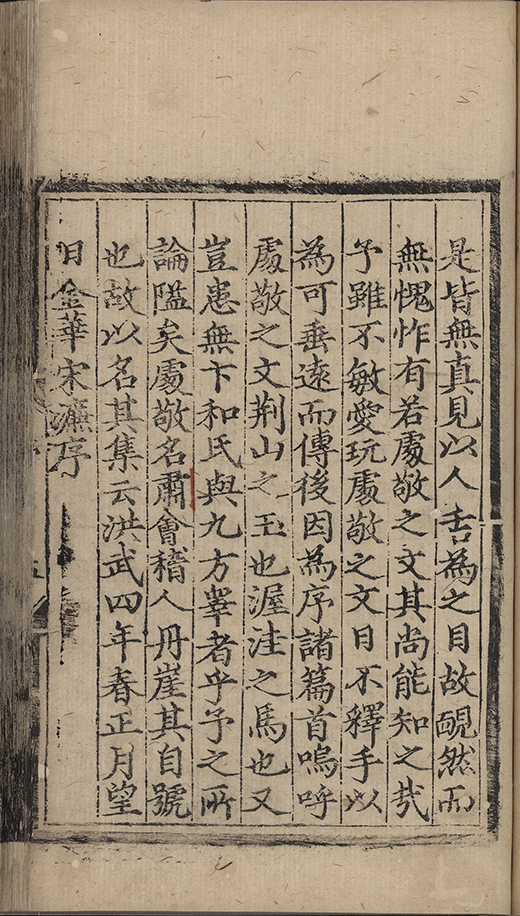 是皆無真見以人舌為之目故靦然而
無愧怍有若處敬之文其尚能知之㦲
予雖不敏愛玩處敬之文日不釋手以
為可垂遠而傳後因為序諸篇首嗚呼
處敬之文荆山之玉也渥洼之馬也又
豈患無卞和氏與九方臯者乎予之所
論隘矣處敬名肅會稽人丹崖其自號
也故以名其集云洪武四年春正月望
日金華宋濂序